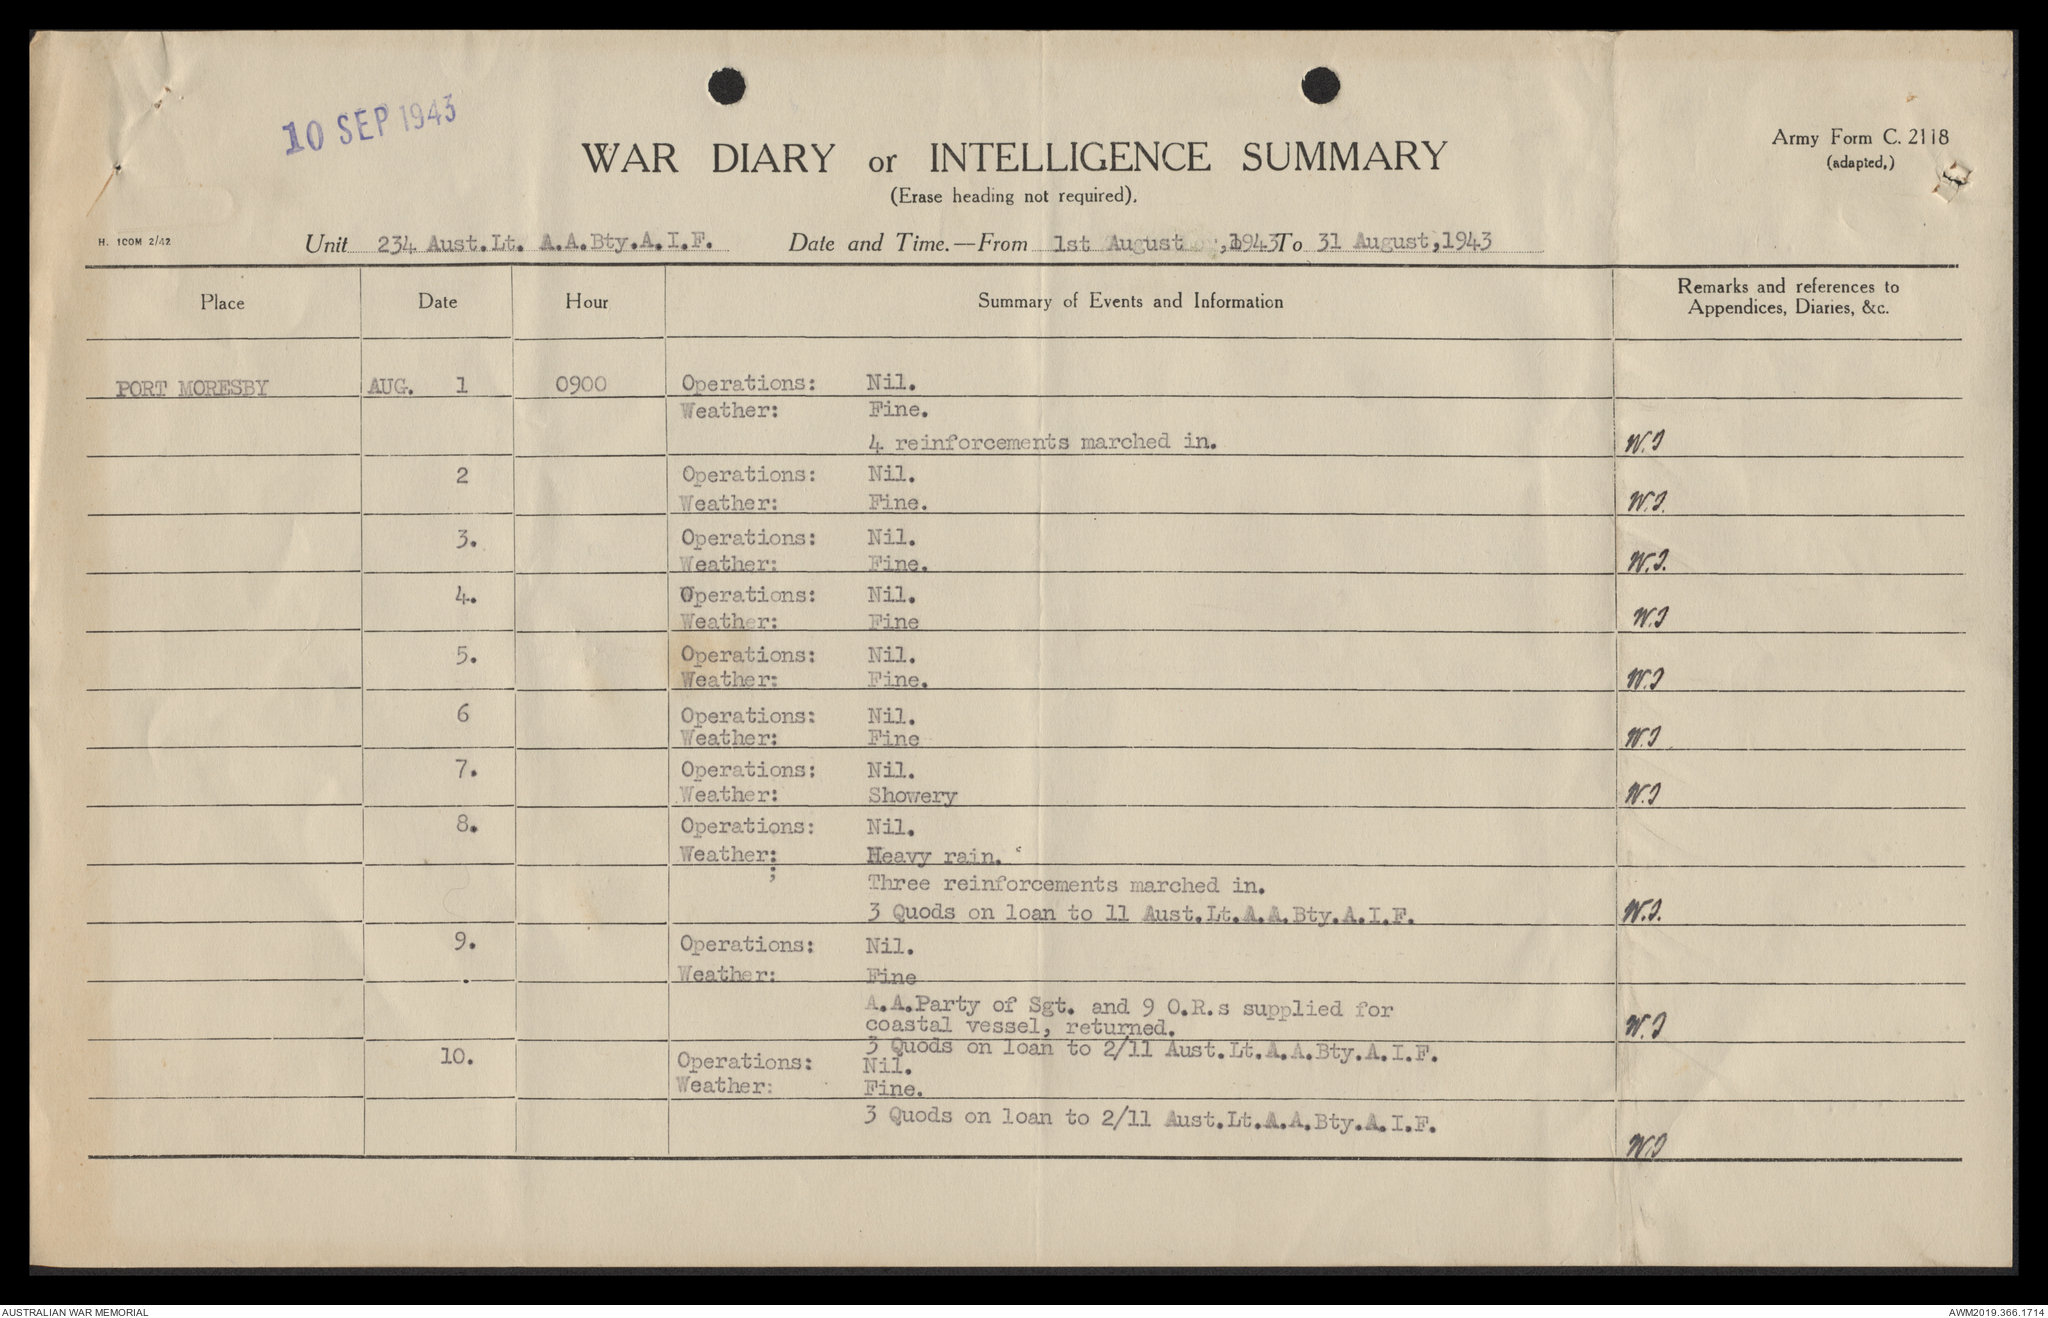 10 SEP 1943
WAR DIARY or INTELLIGENCE SUMMARY
(Erase heading not required).
Army Form C. 2118
(adapted.)
H. 100M 2/42
Unit 234 Aust.Lt. A.A.Bty.A.I.F. Date and Time.—From 1st August ,1943 To 31 August,1943
Place Date Hour Summary of Events and Information Remarks and references to
Appendices, Diaries, &c.
PORT MORESBY AUG. 1 0900 Operations: Nil.
Weather: Fine.
4 reinforcements marched in. W.J
2 Operations: Nil.
Weather: Fine. W.J.
3. Operations: Nil.
Weather: Fine. W.J.
4. Operations: Nil.
Weather: Fine W.J
5. Operations: Nil.
Weather: Fine. W.J
6 Operations: Nil.
Weather: Fine W.J
7. Operations: Nil.
Weather: Showery W.J
8. Operations: Nil.
Weather: Heavy rain.
;
Three reinforcements marched in.
3 Quods on loan to 11 Aust.Lt.A.A.Bty.A.I.F. W.J.
9. Operations: Nil.
. Weather: Fine
A.A.Party of Sgt. and 9 O.R.s supplied for
coastal vessel, returned. W.J
3 Quods on loan to 2/11 Aust.Lt.A.A.Bty.A.I.F.
10. Operations: Nil.
Weather: Fine.
3 Quods on loan to 2/11 Aust.Lt.A.A.Bty.A.I.F.
W.J
AUSTRALIAN WAR MEMORIAL AWM2019.366.1714